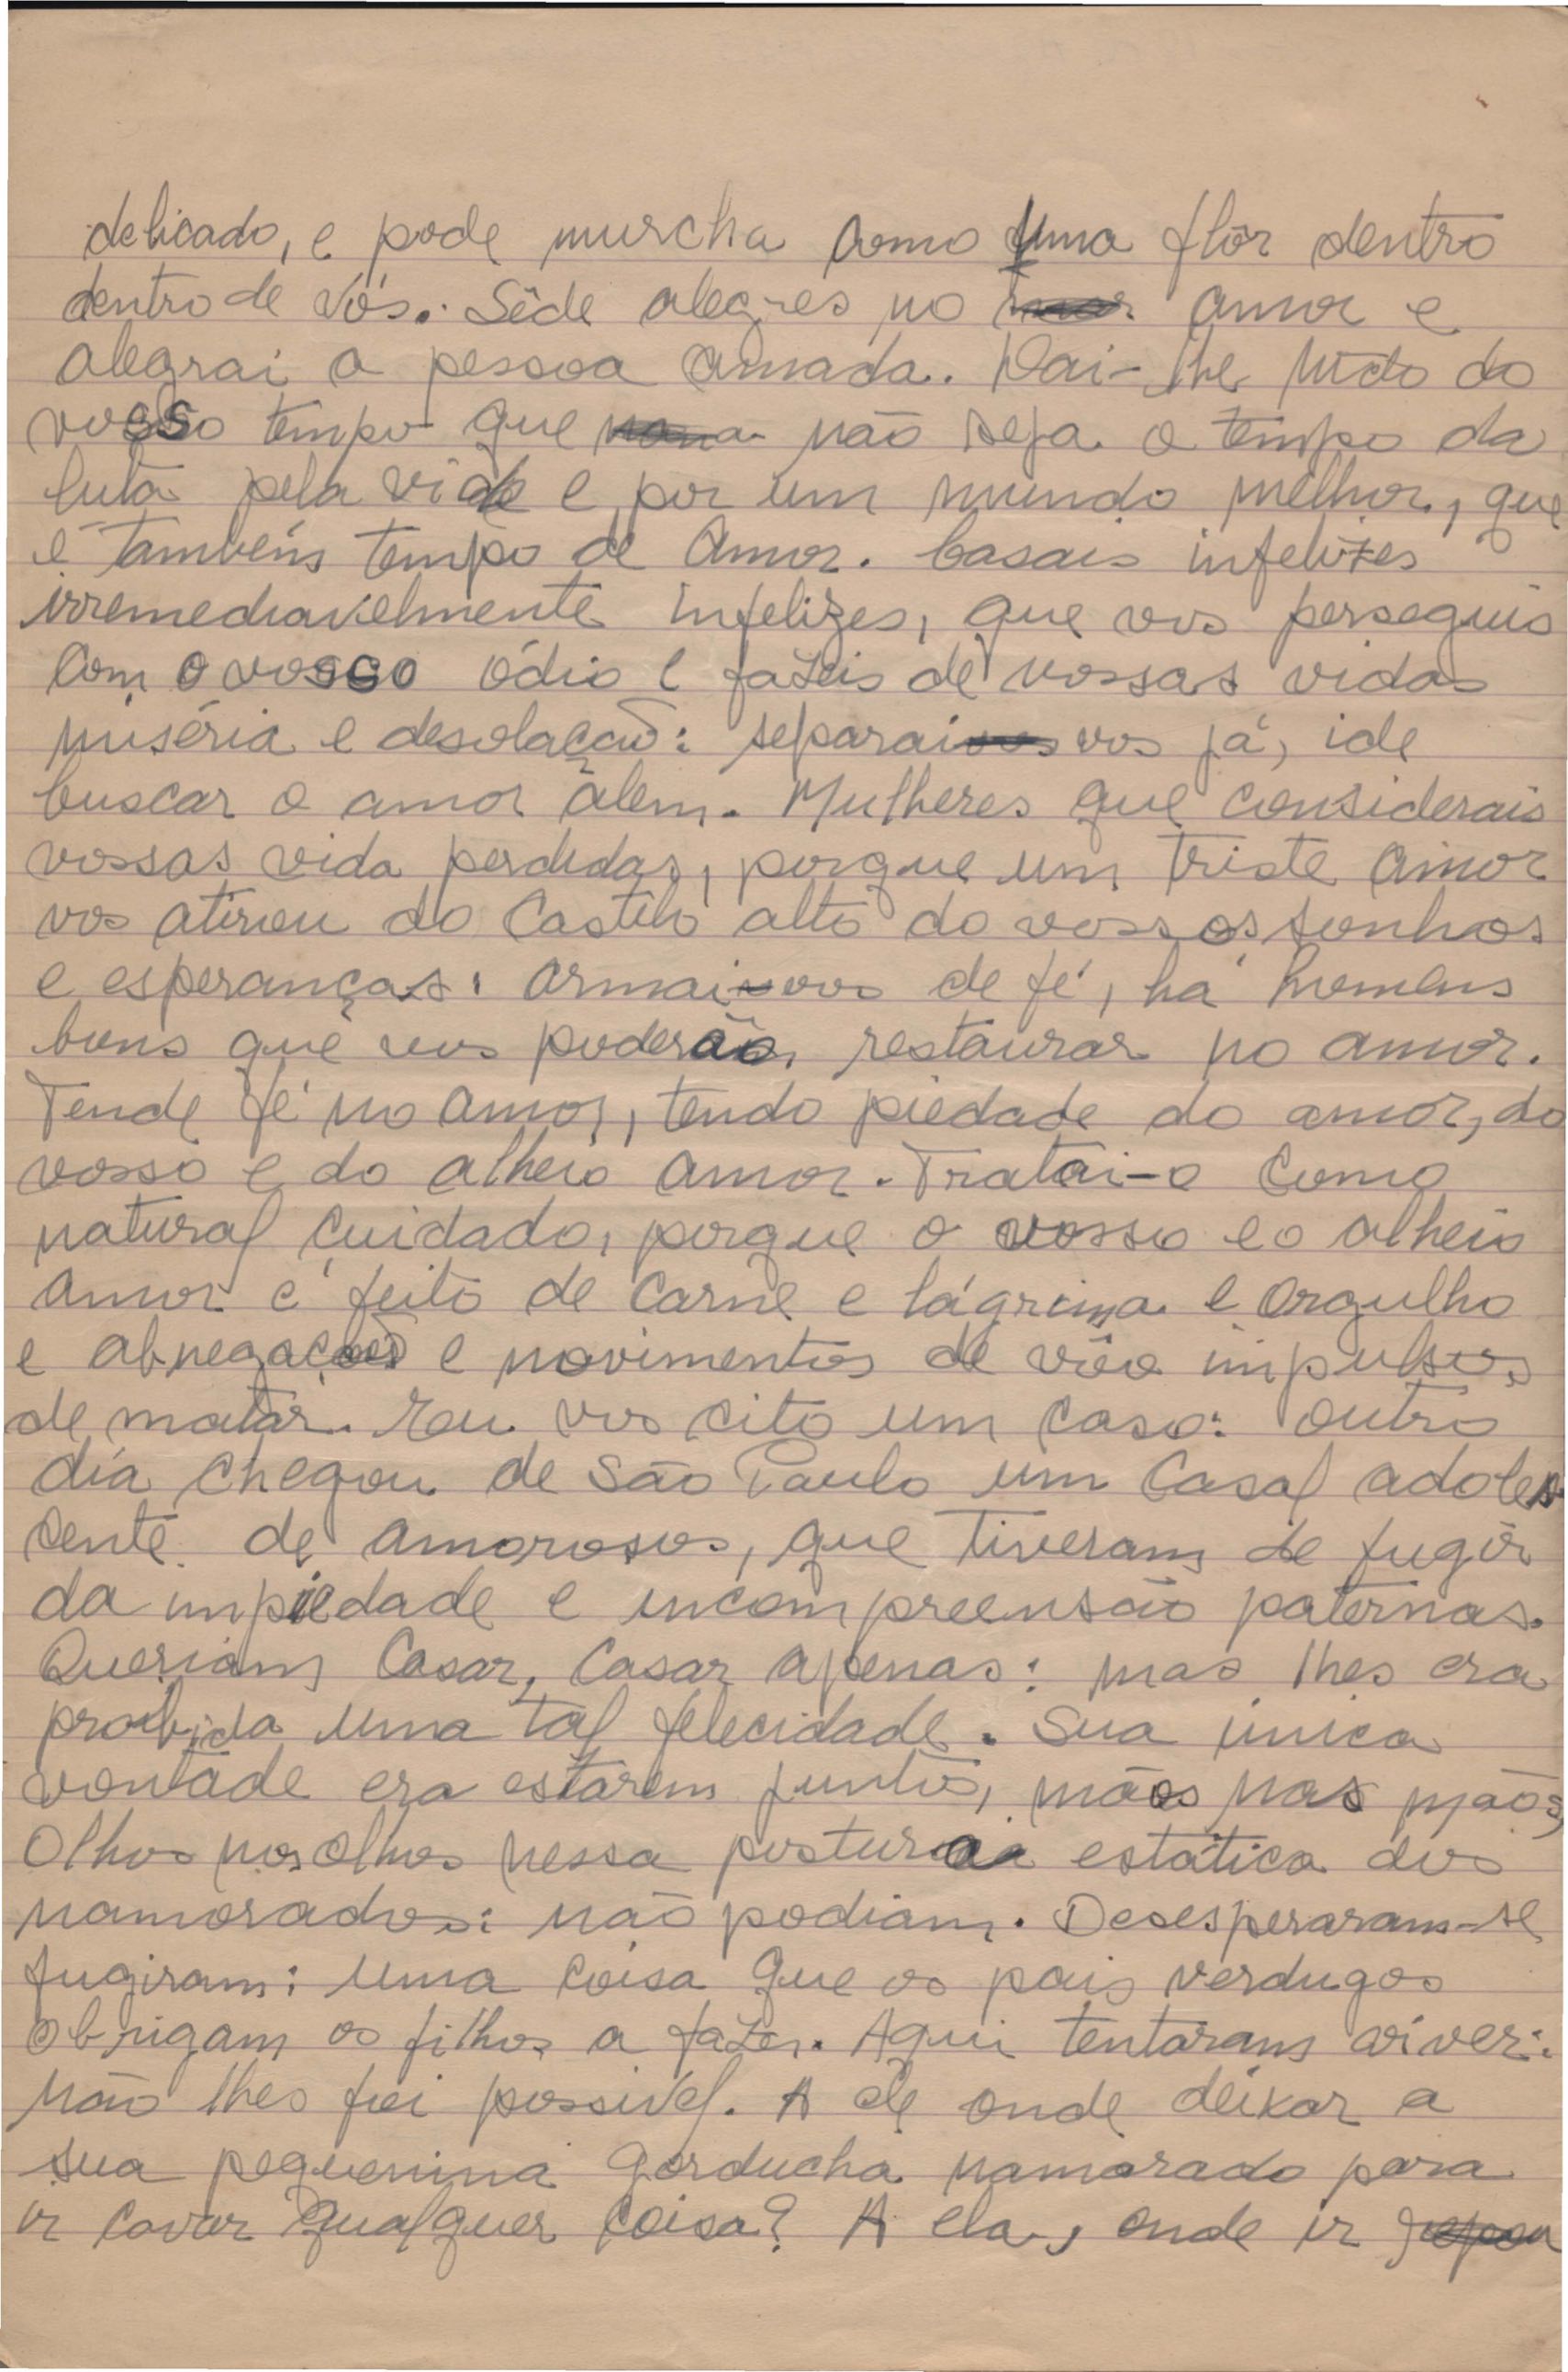 delicado, e pode murcha como uma flôr dentro
dentro de vós. Sêde alegres no amor e
alegrai a pessoa amada. Dai-lhe tudo do
vosso tempo que não seja o tempo da
luta pela vida e por um mundo melhor, que
é também tempo de amor. Casais infelizes
irremediavelmente infelizes, que vos perseguis
com o vosso ódio e fazeis de vossas vidas
miséria e desolação: separai vos já, ide
buscar o amor além. Mulheres que considerais
vossas vida perdidas, porque um triste amor
vos atirou do Castelo alto do vossos sonhos
e esperanças: armai-vos de fé, há homens
bons que vos poderão restaurar no amor.
Tende fé no amor, tendo piedade do amor, do
vosso e do alheio amor. Tratai-o como
natural cuidado, porque o vosso e o alheio
amor é feito de carne e lágrima e orgulho
e abnegações e movimentos de vôo impulsos
de matar. Eu vos cito um caso: outro
dia chegou de São Paulo um Casal adoles
cente de amorosos, que tiveram de fugir
da impiedade e incompreensão paternas.
Queriam Casar, Casar apenas: mas lhes era
proibida uma tal felecidade. Sua única
vontade era estarem juntos, mãos nas mãos,
Olhos nos olhos nessa postura estática dos
namorados: não podiam. Desesperaram-se
fugiram: uma coisa que os pais verdugos
obrigam os filhos a fazer. Aqui tentaram viver:
não lhes foi possivel. A ele onde deixar a
sua pequenina gorducha namorado para
ir cavar qualquer coisa? A ela, onde ir